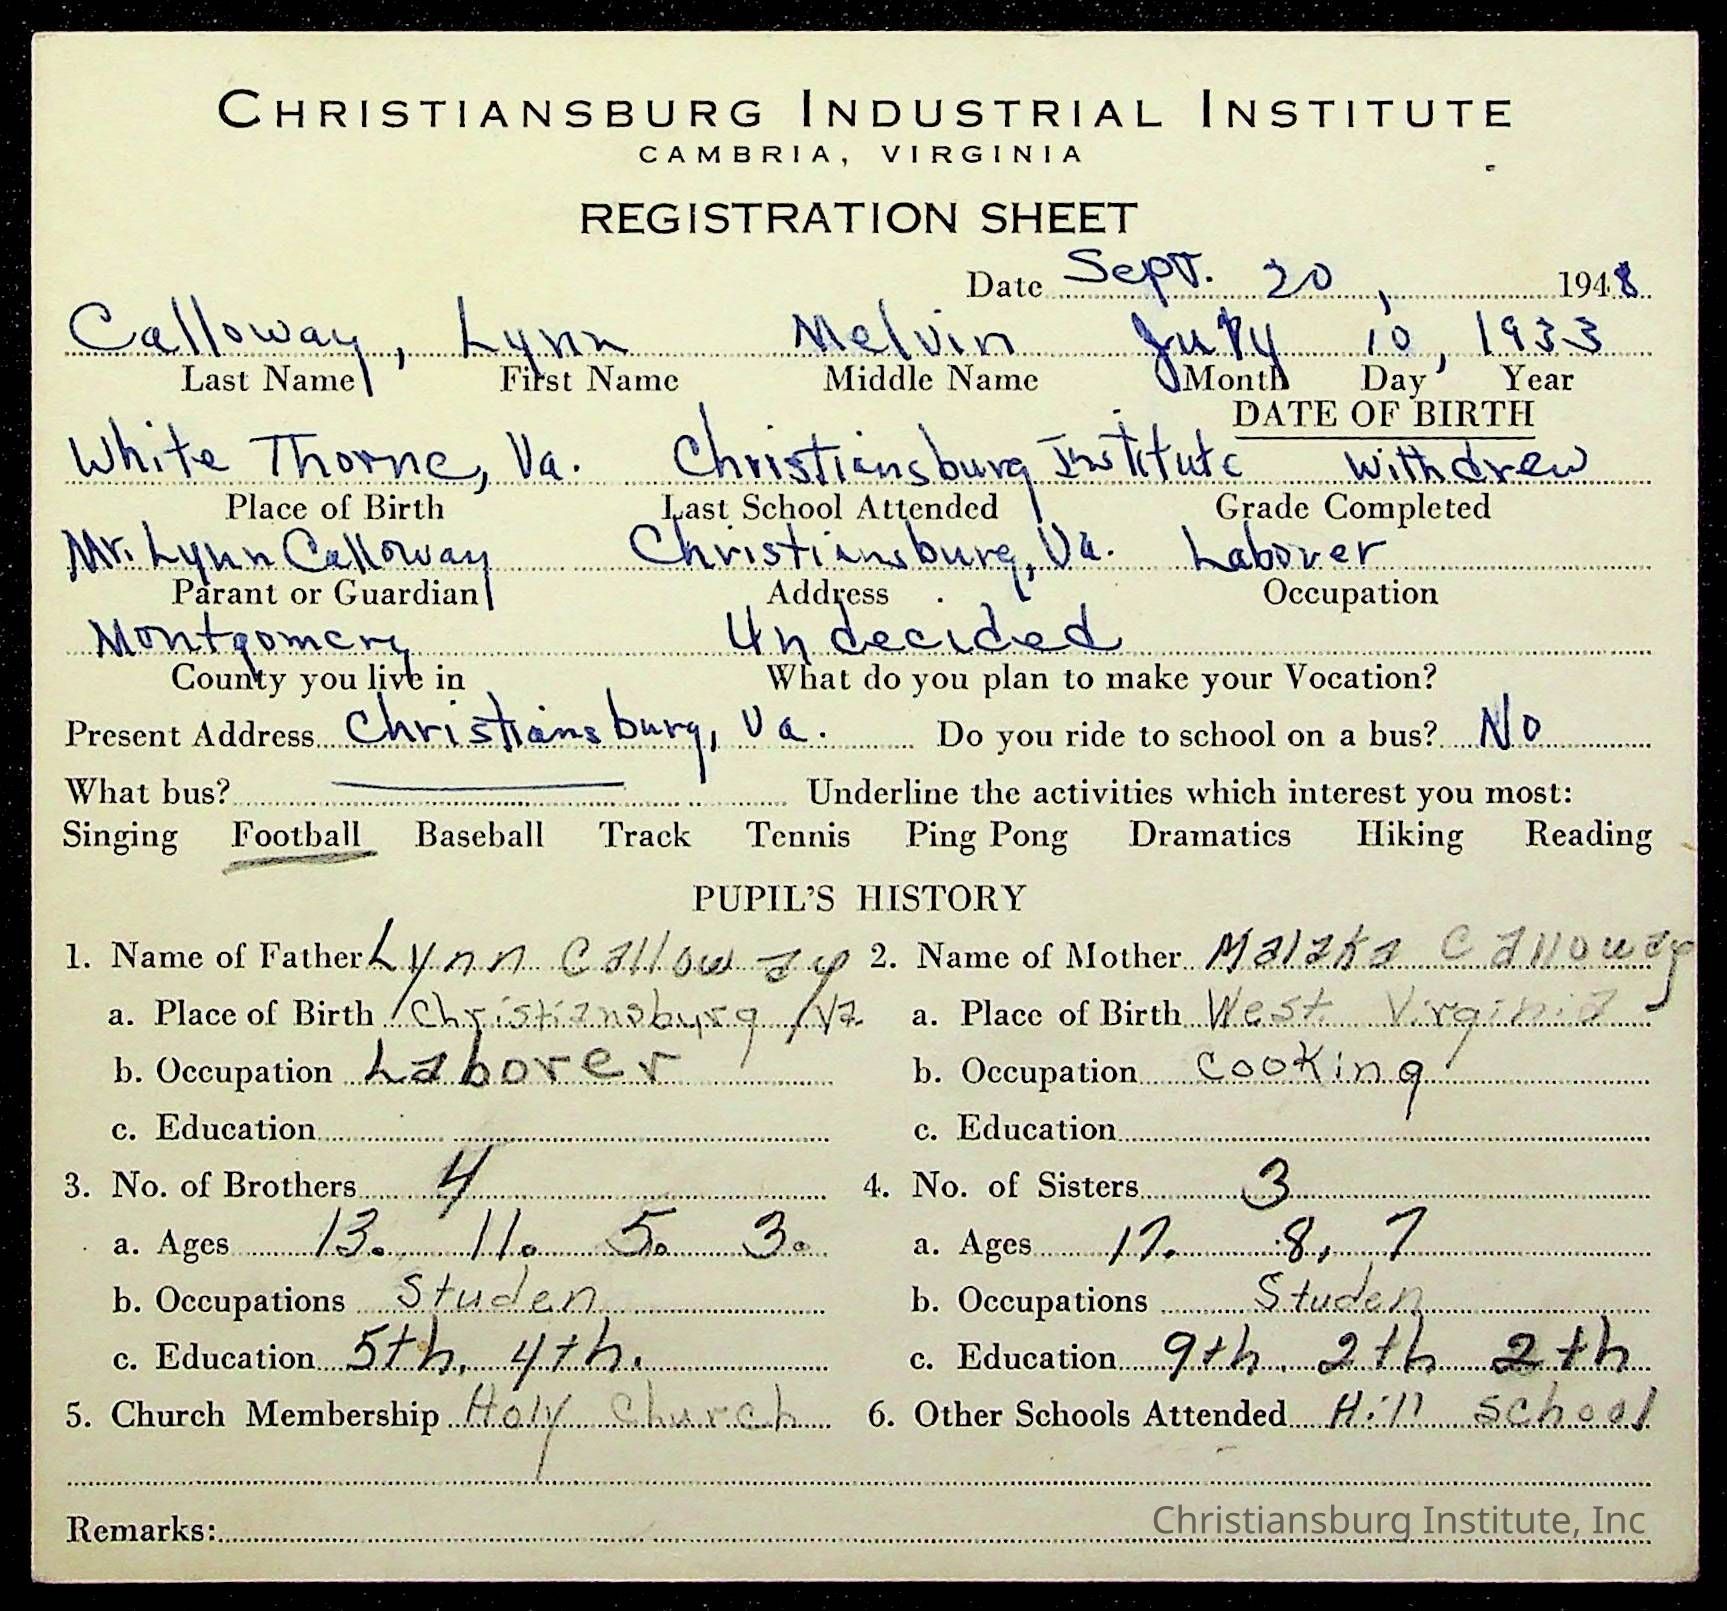 CHRISTIANSBURG INDUSTRIAL INSTITUTE
CAMBRIA, VIRGINIA
REGISTRATION SHEET
Date Sept. 20, 1948
Calloway, Lynn Melvin July 10, 1933
Last Name First Name Middle Name Month Day Year
DATE OF BIRTH
White Thorne, Va. Christiansburg Institute Withdrew
Place of Birth Last School Attended Grade Completed
Mr. Lynn Calloway Christiansburg, Va. Laborer
Parant or Guardian Address Occupation
Montgomery Undecided
County you live in What do you plan to make your Vocation?
Present Address Christiansburg, Va. Do you ride to school on a bus? No
What bus? Underline the activities which interest you most:
Singing Football Baseball Track Tennis Ping Pong Dramatics Hiking Reading
PUPIL'S HISTORY
1. Name of Father Lynn Calloway 2. Name of Mother Malaka Calloway
a. Place of Birth Christiansburg, Va a. Place of Birth West Virginia
b. Occupation Laborer b. Occupation Cooking
c. Education c. Education
3. No. of Brothers 4 4. No. of Sisters 3
a. Ages 13. 11. 5. 3. a. Ages 17. 8, 7
b. Occupations Studen b. Occupations Studen
c. Education 5th. 4th. c. Education 9th. 2th 2th
5. Church Membership Holy Church 6. Other Schools Attended Hill School
Remarks:
Christiansburg Institute, Inc